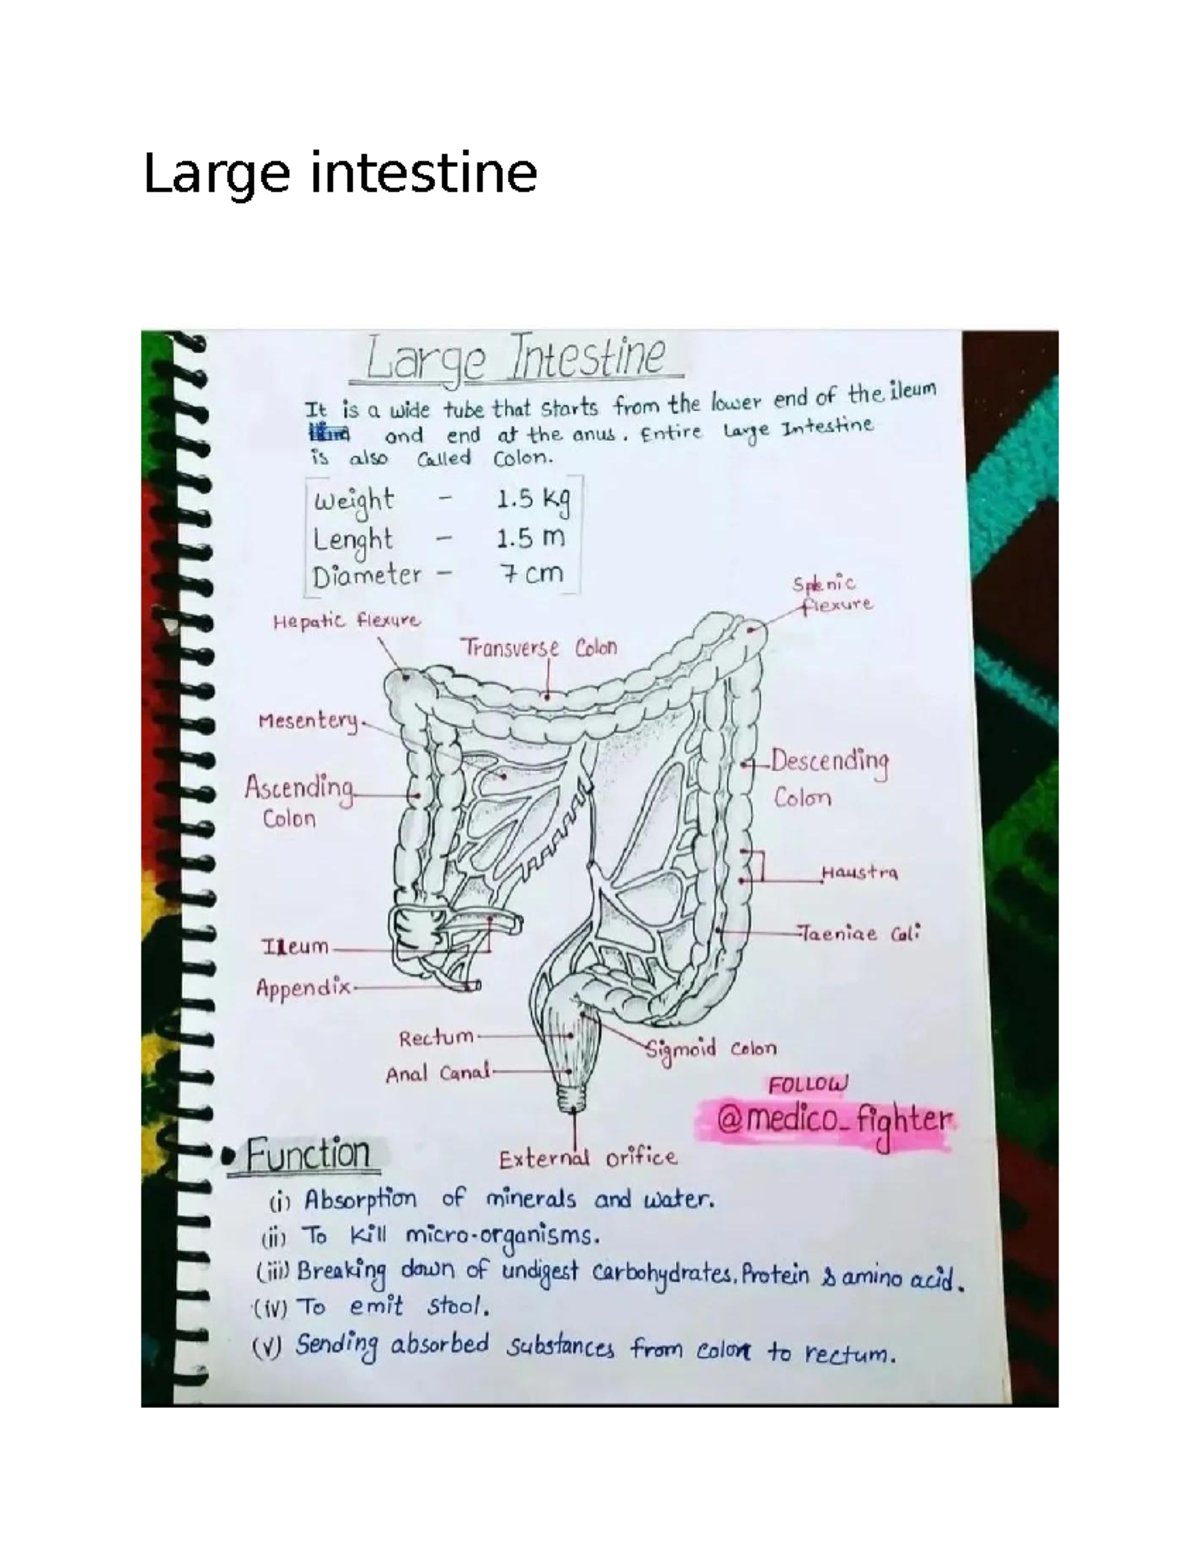 Large intestine
Large Intestine
It is a wide tube that starts from the lower end of the ileum
and end at the anus. Entire Large Intestine
is also Called Colon.
Weight - 1.5 kg
Lenght - 1.5 m
Diameter - 7 cm
Splenic
flexure
Hepatic flexure
Transverse Colon
Mesentery
Ascending
Colon
Descending
Colon
Haustra
Taeniae Coli
Ileum
Appendix
Rectum
Sigmoid Colon
Anal Canal
FOLLOW
@medico_fighter
External orifice
• Function
(i) Absorption of minerals and water.
(ii) To kill micro-organisms.
(iii) Breaking down of undigest carbohydrates, Protein & amino acid.
(iv) To emit stool.
(v) Sending absorbed substances from colon to rectum.